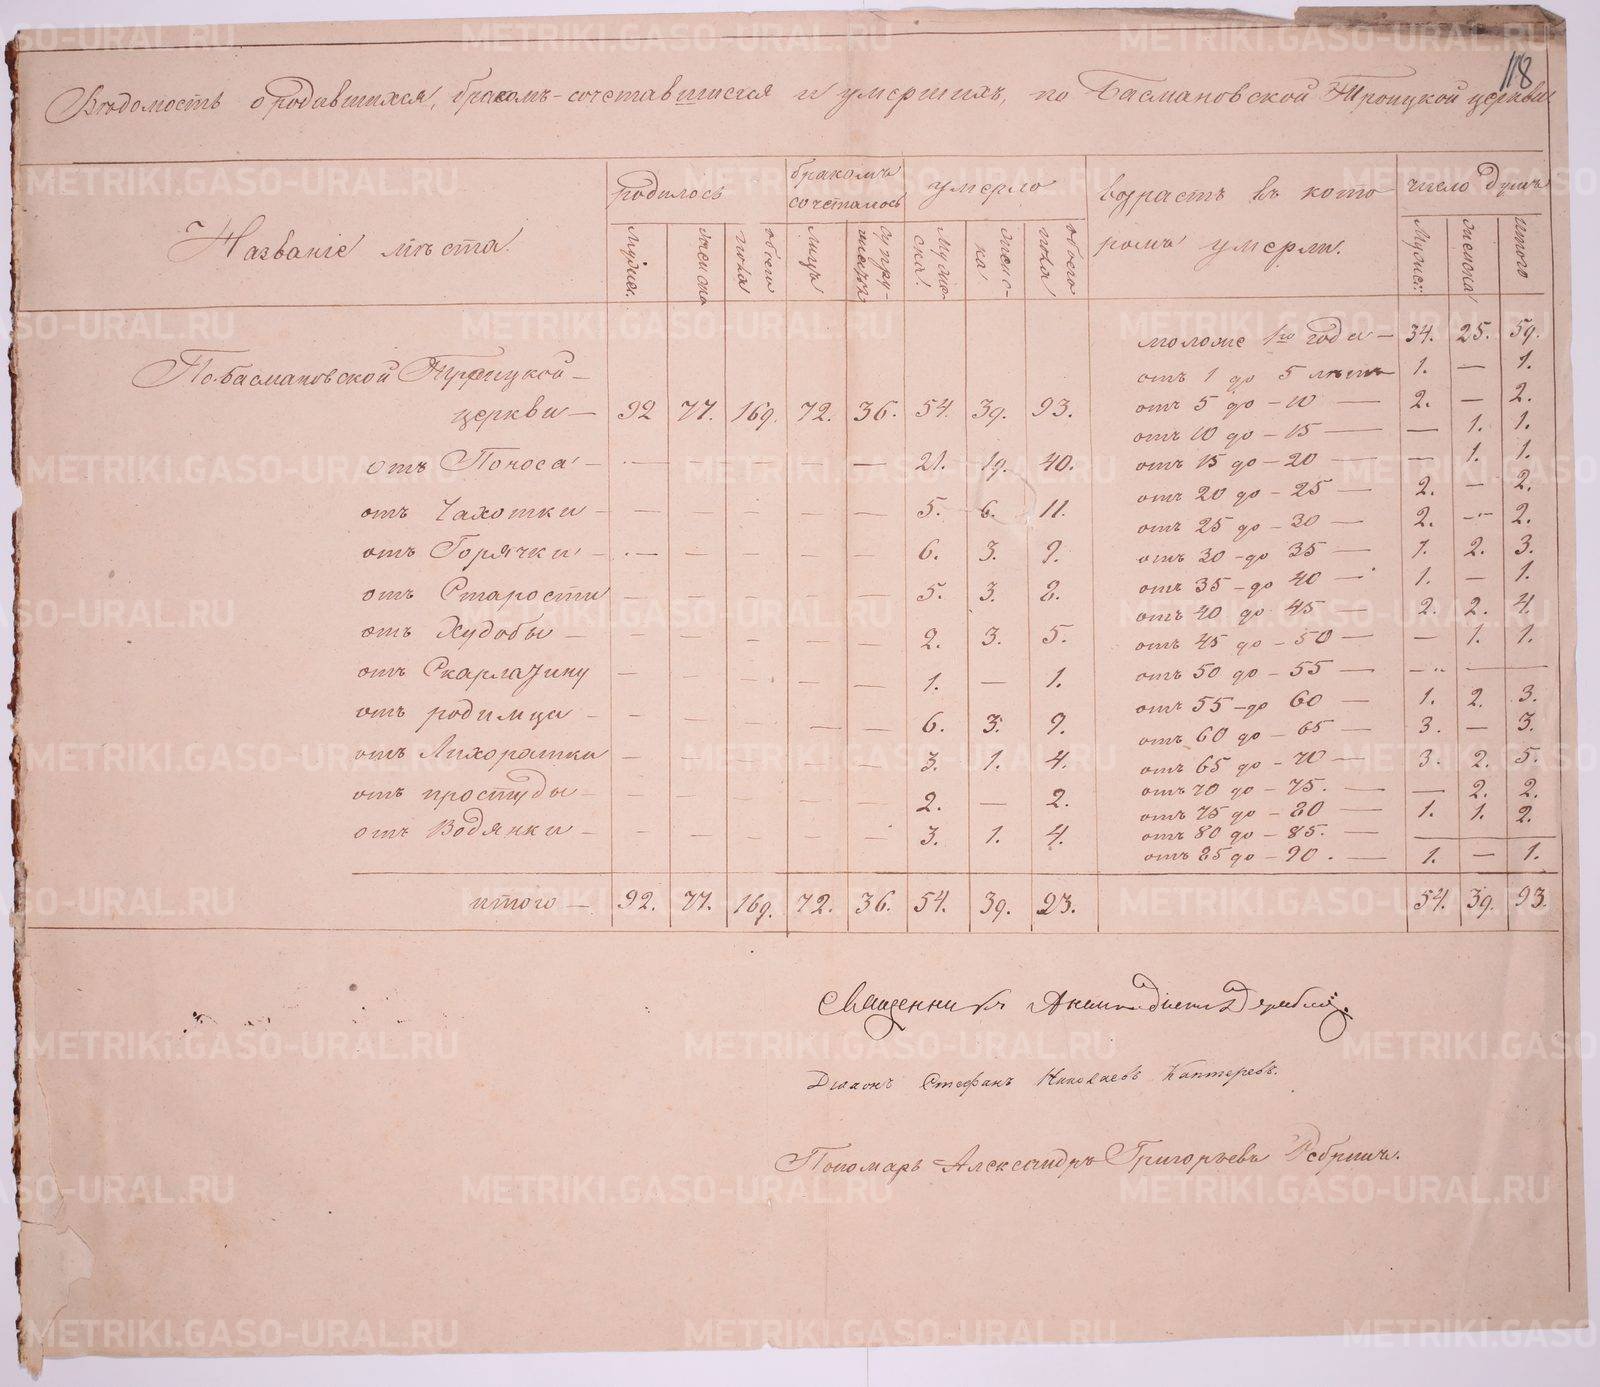 118
Вѣдомость о родившихся, бракомъ-сочетавшихся и умершихъ, по Басмановской Троицкой церкви
Названіе мѣста. родилось бракомъ сочеталось умерло возрастъ въ которомъ умерли. число душъ
мужес. женска обоего пола лицъ супружествъ Мужеска. женска. обоего пола Мужес: женска итого
По Басмановской Троицкой –
церкви – 92 77. 169. 72. 36. 54. 39. 93.
отъ Поноса – – – – – – 21. 19. 40.
отъ Чахотки – – – – – – 5. 6. 11.
отъ Горячки – – – – – – 6. 3. 9.
отъ Старости – – – – – 5. 3. 8.
отъ Худобы – – – – – – 2. 3. 5.
отъ Скарлатину – – – – – 1. – 1.
отъ родимца – – – – – – 6. 3. 9.
отъ Лихоратки – – – – – 3. 1. 4.
отъ простуды – – – – – – 2. – 2.
отъ Водянки – – – – – – 3. 1. 4.
моложе 1го года – 34. 25. 59.
отъ 1 до 5 лѣтъ 1. – 1.
отъ 5 до – 10 – 2. – 2.
отъ 10 до – 15 – – 1. 1.
отъ 15 до – 20 – – 1. 1.
отъ 20 до – 25 – 2. – 2.
отъ 25 до – 30 – 2. – 2.
отъ 30 – до 35 – 1. 2. 3.
отъ 35 – до 40 – 1. – 1.
отъ 40 до – 45 – 2. 2. 4.
отъ 45 до – 50 – – 1. 1.
отъ 50 до – 55 – – –
отъ 55 – до 60 – 1. 2. 3.
отъ 60 до – 65 – 3. – 3.
отъ 65 до – 70 – 3. 2. 5.
отъ 70 до – 75. – – 2. 2.
отъ 75 до – 80 – 1. 1. 2.
отъ 80 до – 85. – –
отъ 85 до – 90. – 1. – 1.
итого – 92. 77. 169. 72. 36. 54. 39. 93. 54. 39. 93.
Священникъ
Діаконъ Стефанъ Николаевъ Каптеревъ.
Пономарь Александръ Григорьевъ
METRIKI.GASO-URAL.RU